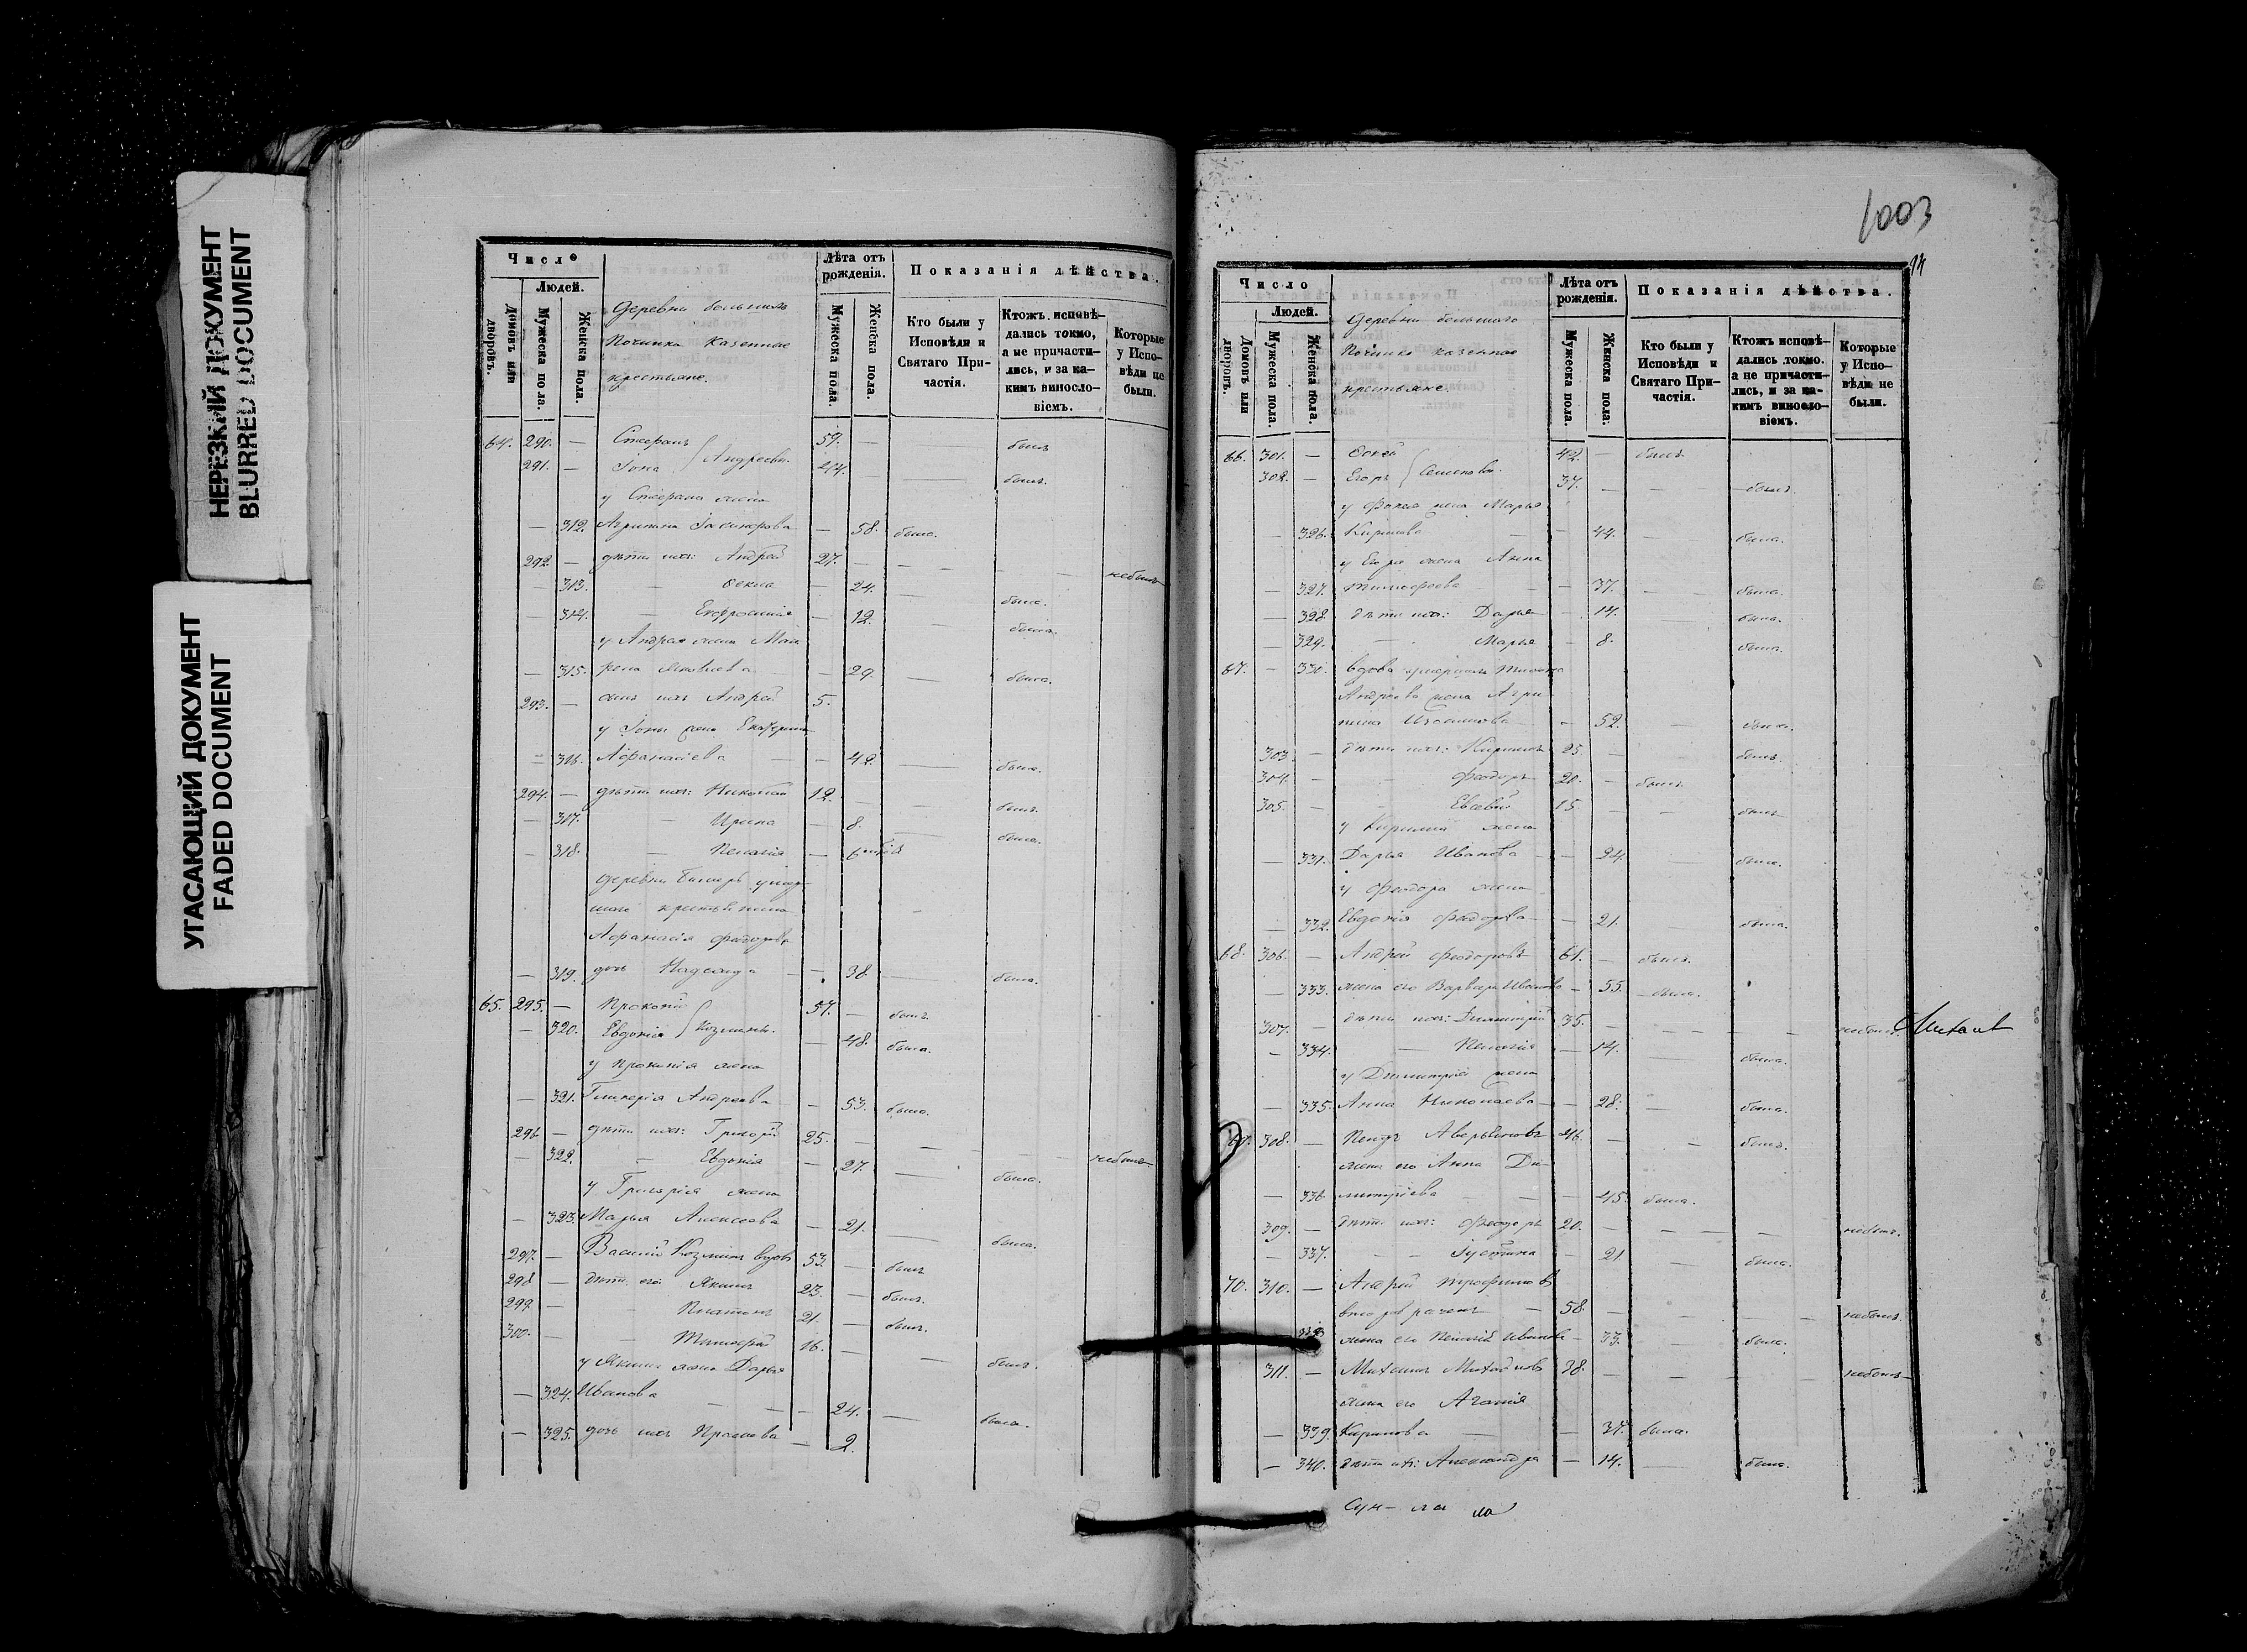 НЕРЕЗКИЙ ДОКУМЕНТ
BLURRED DOCUMENT
УГАСАЮЩИЙ ДОКУМЕНТ
FADED DOCUMENT
Число
Людей.
Домовъ или дворовъ.
Мужеска пола.
Женска пола.
Деревни большаго
Починка казенные
крестьяне.
Лѣта отъ рожденія.
Мужеска пола.
Женска пола.
Показанія дѣйства.
Кто были у Исповѣди и Святаго Причастія.
Ктожъ исповѣдались токмо, а не причастились, и за какимъ винословіемъ.
Которые у Исповѣди не были.
64. 290. — 59. — былъ
291. — Іона Андреевы. 44. — былъ.
у жена
— 312. Агрипина — 58. была.
292 — дѣти ихъ: Андрей 27. — небылъ
— 313. — Ѳекла — 24. была.
— 314. — Евфросинія — 12. была.
у Андрея жена Мав
— 315. ра Яковлева — 29. была.
293. — сынъ ихъ Андрей 5.
у Іоны жена Екатерина
— 316. Афанасіева — 42. была.
294. — дѣти ихъ: Николай 12. былъ.
— 317. — Ирина — 8. была.
— 318. — Пелагія — 6
деревни
крестьянина
Афанасія Феодорова
— 319. дочь Надежда — 38. была.
65. 295. — Прокопій 57. — былъ.
— 320. Евдокія Козмины. — 48. была.
у Прокопія жена
— 321. Гликерія Андреева — 53. была.
296. — дѣти ихъ: Григорій 25. — небылъ
— 322. — Евдокія — 27. была.
у Григорія жена
— 323. Марья Алексеева — 21. была.
297. — Василій Козминъ вдовъ 53. — былъ
298 — дѣти его: Якимъ 23. — былъ.
299. — Платонъ 21. — былъ.
300. — Тимофей 16. — былъ.
у Якима жена Дарья
— 324. Иванова — 24. была.
— 325. дочь ихъ — 2.
1003
Число
Людей.
Домовъ или дворовъ.
Мужеска пола.
Женска пола.
Деревни большаго
Починка казенные
крестьяне.
Лѣта отъ рожденія.
Мужеска пола.
Женска пола.
Показанія дѣйства.
Кто были у Исповѣди и Святаго Причастія.
Ктожъ исповѣдались токмо. а не причастились, и за какимъ винословіемъ.
Которые у Исповѣди не были.
66. 301. — 42. — былъ
302. — Егоръ Семеновы. 37. — былъ.
у жена Марья
— 326. Кирилова — 44. была.
у Егора жена Анна
— 327. Тимофеева — 37. была.
— 328. дѣти ихъ: Дарья — 14. была.
— 329. — Марья — 8. была.
67. — 330. вдова
Андреева жена Агри
пина — 52. была.
303. — дѣти ихъ: Кирилъ 25. былъ.
304. — Феодоръ 20. — былъ.
305. — Евсевій 15. былъ
у Кирилы жена
— 331. Дарья Иванова — 24. была.
у Феодора жена
— 332. Евдокія Феодорова — 21. была.
68. 306. — Андрей Феодоровъ 61. — былъ.
— 333. жена его Варвара Иванова — 55. была.
307. — дѣти ихъ: Димитрій 35. — небылъ
— 334. — Пелагія — 14. была.
у Димитрія жена
— 335. Анна Николаева — 28. была.
69. 308. — Аверьяновъ 46. — былъ.
жена его Анна Ди-
— 336 митріева — 45. была.
309. — дѣти ихъ: Феодоръ 20. — небылъ.
— 337. — Іустина — 21 была.
70. 310. — Андрей Трофимовъ
58. — небылъ.
338 жена его Пелагія Иванова — 33. была.
311. — Михаилъ Михайловъ 38. — небылъ
жена его Агафія
— 339. Кирилова — 37. была.
— 340. дѣти ихъ: Александра — 14. была.